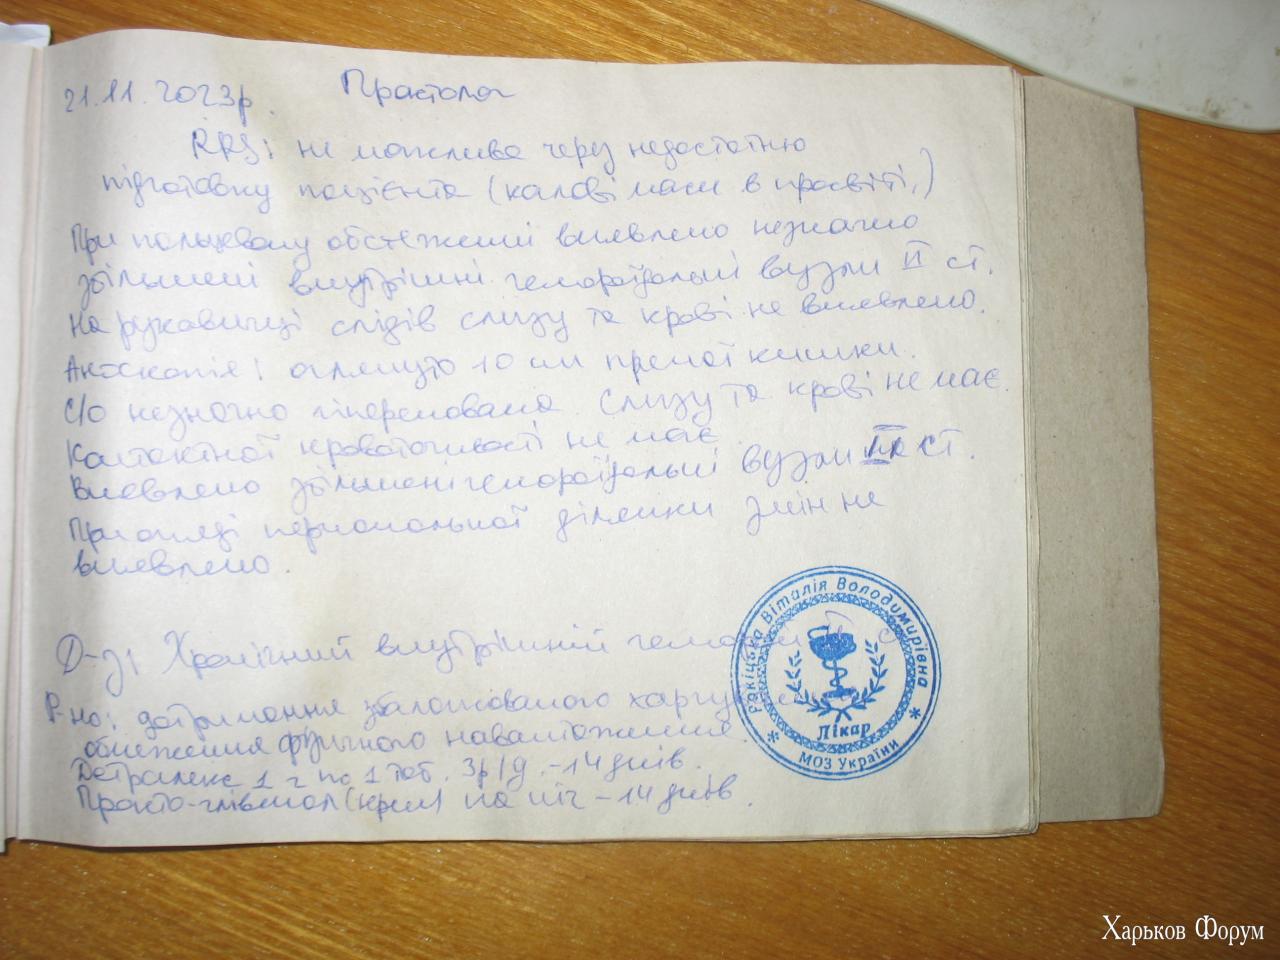 21.11.2023р. Проктолог
RRS: не можлива через недостатню
підготовку пацієнта (калові маси в просвіті.)
При пальцевому обстеженні виявлено незначно
збільшені внутрішні гемороїдальні вузли II ст.
На рукавичці слідів слизу та крові не виявлено.
Аноскопія: оглянуто 10 см прямої кишки.
С/о незначно гіперемована. Слизу та крові немає.
Контактної кровоточивості не має.
Виявлено збільшені гемороїдальні вузли II ст.
При огляді періанальної ділянки змін не
виявлено.
Д-з: Хронічний внутрішній геморой II ст
Р-но: дотримання збалансованого
обмеження фізичного навантаження
Детралекс 1 г по 1 таб. 3р/д. - 14 днів.
Прокто-глівенол (крем) на ніч - 14 днів.
Ракіцька Віталія Володимирівна
Лікар
* МОЗ України *
Харьков Форум